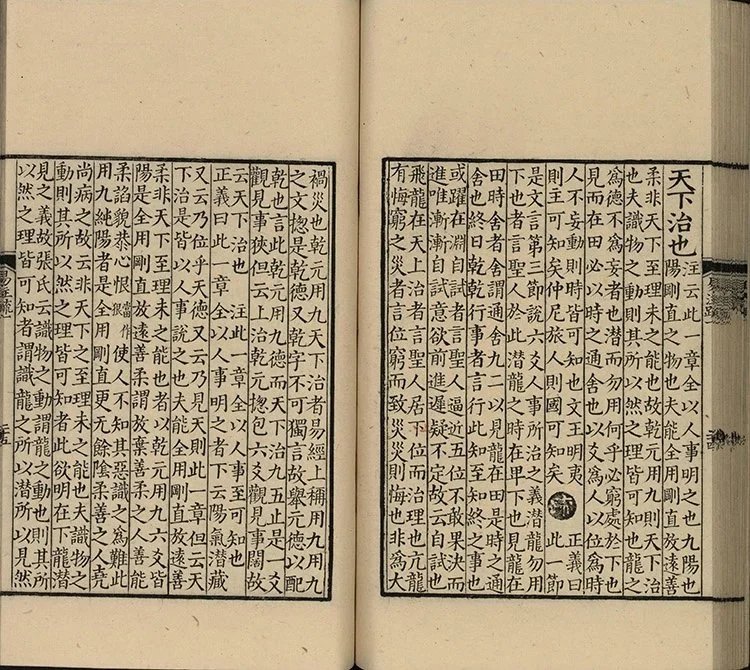 天下治也
注云此一章全以人事明之也九陽也
陽剛直之物也夫能全用剛直放遠善
柔非天下至理未之能也故乾元用九則天下治
也夫識物之動則其所以然之理皆可知也龍之
爲德不爲妄者也潛而勿用何乎必窮處於下也
見而在田必以時之通舍也以爻爲人以位爲時
人不妄動則時皆可知也文王明夷
則主可知矣仲尼旅人則國可知矣
疏
正義曰
此一節
是文言第三節說六爻人事所治之義潛龍勿用
下也者言聖人於此潛龍之時在卑下也見龍在
田時舍者舍謂通舍九二以見龍在田是時之通
舍也終日乾乾行事者言行此知至知終之事也
或躍在淵自試者言聖人逼近五位不敢果決而
進唯漸漸自試意欲前進遲疑不定故云自試也
飛龍在天上治者言聖人居下位而治理也亢龍
有悔窮之災者言位窮而致災災則悔也非爲大
禍災也乾元用九天下治者易經上稱用九用九
之文揔是乾德又乾字不可獨言故舉元德以配
乾也言此乾元用九德而天下治九五止是一爻
觀見事狹但云上治乾元揔包六爻觀見事闊故
云天下治也 注此一章全以人事至可知也
正義曰此一章全以人事明之者下云陽氣潛藏
又云乃位乎天德又云乃見天則此一章但云天
下治是皆以人事說之也夫能全用剛直放遠善
柔非天下至理未之能也者以乾元用九六爻皆
陽是全用剛直放遠善柔謂放棄善柔之人善能
柔諂貌恭心恨當作狠使人不知其惡識之爲難此
用九純陽者是全用剛直更无餘陰柔善之人堯
尚病之故云非天下之至理未之能也夫識物之
動則其所以然之理皆可知者此欲明在下龍潛
見之義故張氏云識物之動謂龍之動也則其所
以然之理皆可知者謂識龍之所以潛所以見然